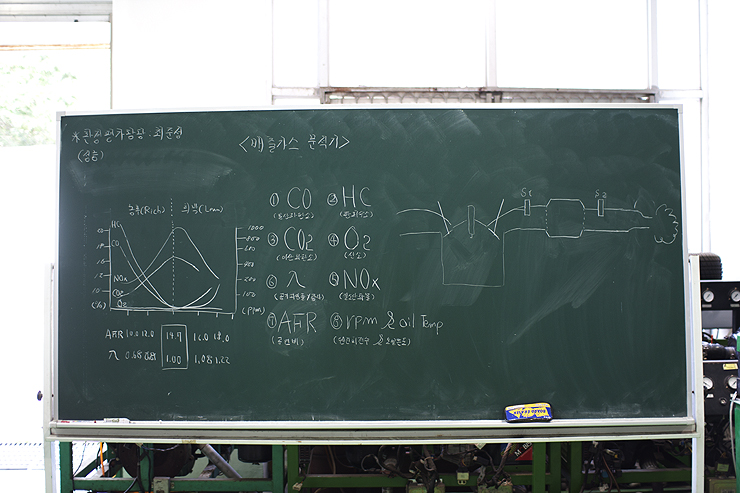 <배출가스 분석기>
농후(Rich) 희박(Lean)
HC
CO
NOx
CO2
O2
(%)
1000
800
600
400
200
100
(PPM)
AFR 10.0 12.0 14.7 16.0 18.0
λ 1.00 1.08 1.22
① CO ② HC
(일산화탄소) (탄화수소)
③ CO2 ④ O2
(이산화탄소) (산소)
⑥ λ ⑤ NOx
(질소산화물)
⑦ AFR ⑧ rpm & oil Temp
(공연비) (엔진회전수 & 오일온도)
S1 S2